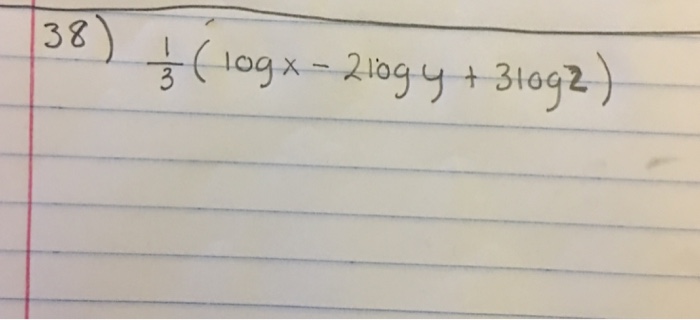 38) 1/3 (logx - 2logy + 3logz)